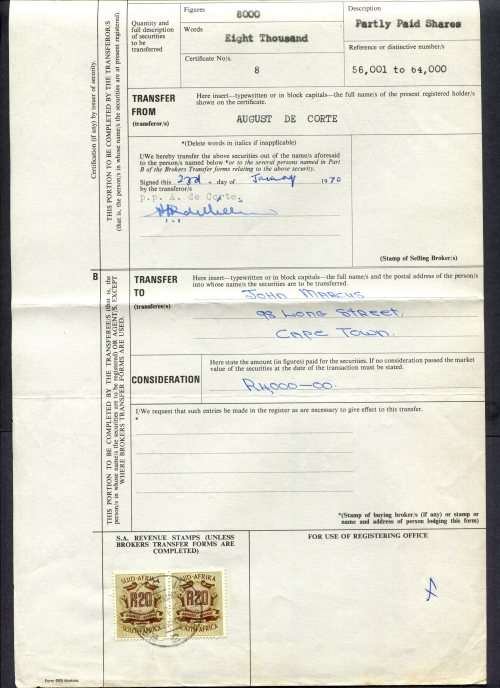 Figures
8000
Description
Partly Paid Shares
Quantity and
full description
of securities
to be
transferred
Words
Eight Thousand
Certificate No/s.
8
Reference or distinctive number/s
56,001 to 64,000
Certification (if any) by issuer of security.
THIS PORTION TO BE COMPLETED BY THE TRANSFEROR/S
(that is, the person/s in whose name/s the securities are at present registered).
TRANSFER
FROM
(transferor/s)
Here insert—typewritten or in block capitals—the full name/s of the present registered holder/s
shown on the certificate.
AUGUST DE CORTE
*(Delete words in italics if inapplicable)
I/We hereby transfer the above securities out of the name/s aforesaid
to the person/s named below *or to the several persons named in Part
B of the Brokers Transfer forms relating to the above securities.
Signed this 23rd day of January 1970
by the transferor/s
p.p. A. de Corte.
(Stamp of Selling Broker/s)
B
THIS PORTION TO BE COMPLETED BY THE TRANSFEREE/S (that is, the
person/s in whose name/s the securities are to be registered) OR AGENT/S, EXCEPT
WHERE BROKERS TRANSFER FORMS ARE USED.
TRANSFER
TO
(transferee/s)
Here insert—typewritten or in block capitals—the full name/s and the postal address of the person/s
into whose name/s the securities are to be transferred.
JOHN MARCUS
98 LONG STREET,
CAPE TOWN.
CONSIDERATION
Here state the amount (in figures) paid for the securities. If no consideration passed the market
value of the securities at the date of the transaction must be stated.
I/We request that such entries be made in the register as are necessary to give effect to this transfer.
*
*(Stamp of buying broker/s (if any) or stamp or
name and address of person lodging this form)
S.A. REVENUE STAMPS (UNLESS
BROKERS TRANSFER FORMS ARE
COMPLETED)
FOR USE OF REGISTERING OFFICE
SUID-AFRIKA
R20
SOUTH AFRICA
SUID-AFRIKA
R20
SOUTH AFRICA